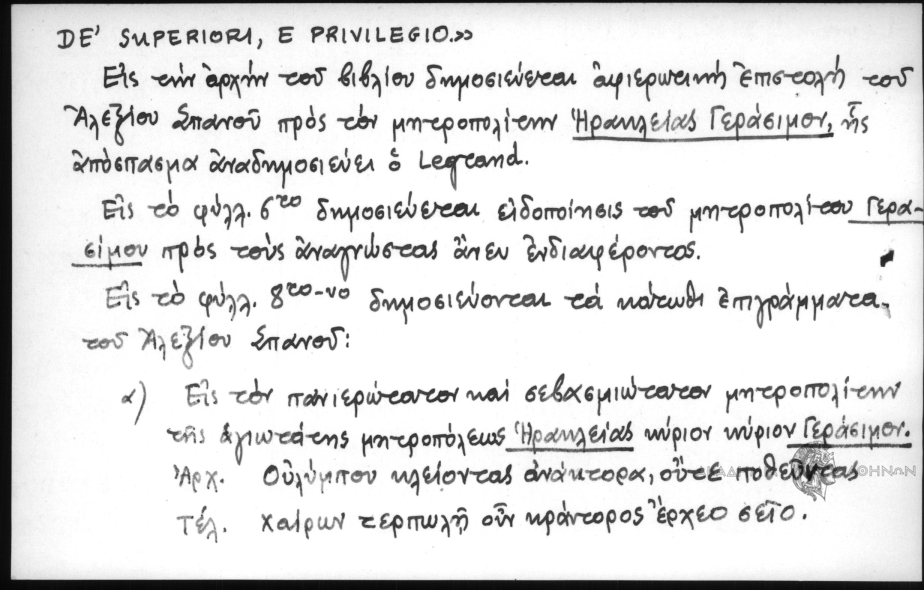 DE' SUPERIORI, E PRIVILEGIO.»
Εἰς τὴν ἀρχὴν τοῦ βιβλίου δημοσιεύεται ἀφιερωτικὴ ἐπιστολὴ τοῦ
Ἀλεξίου Σπανοῦ πρὸς τὸν μητροπολίτην Ἡρακλείας Γεράσιμον, ἧς
ἀπόσπασμα ἀναδημοσιεύει ὁ Legrand.
Εἰς τὸ φύλλ. 6το δημοσιεύεται εἰδοποίησις τοῦ μητροπολίτου Γερα-
σίμου πρὸς τοὺς ἀναγνώστας ἄνευ ἐνδιαφέροντος.
Εἰς τὸ φύλλ. 8το-νο δημοσιεύονται τὰ κάτωθι ἐπιγράμματα
τοῦ Ἀλεξίου Σπανοῦ:
α) Εἰς τὸν πανιερώτατον καὶ σεβασμιώτατον μητροπολίτην
τῆς ἁγιωτάτης μητροπόλεως Ἡρακλείας κύριον κύριον Γεράσιμον.
Ἀρχ. Οὐλύμπου κλείοντας ἀνάκτορα, οὔτε ποθεῦντας
Τέλ. χαίρων τερπωλῇ οὖν κράντορος ἔρχεο σεῖο.